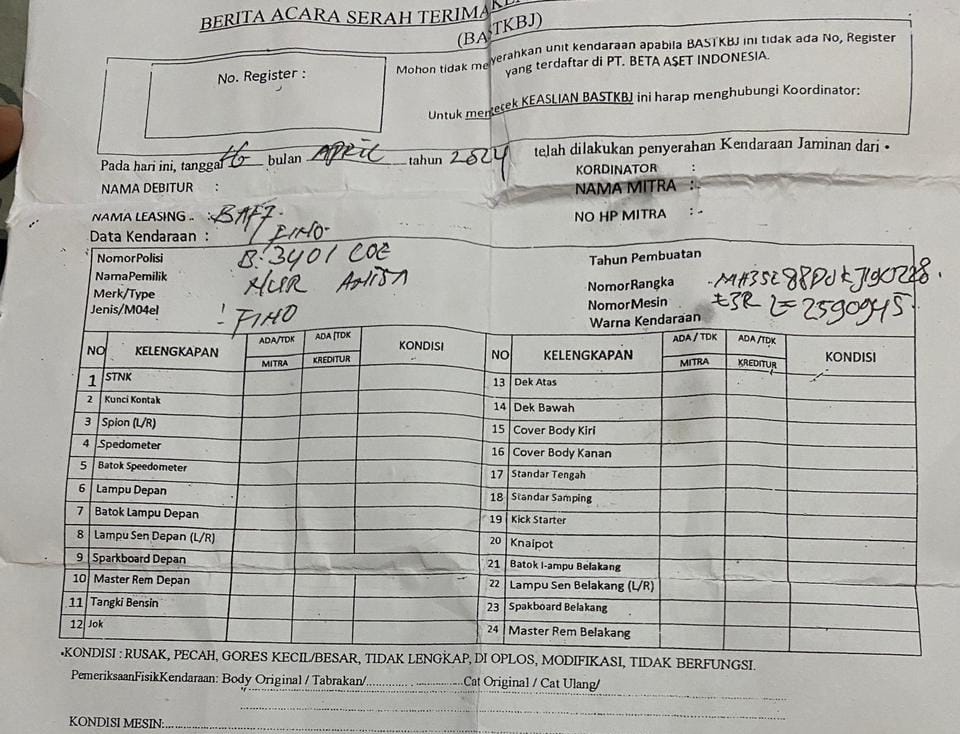 BERITA ACARA SERAH TERIMA
(BASTKBJ)
No. Register :
Mohon tidak menyerahkan unit kendaraan apabila BASTKBJ ini tidak ada No, Register
yang terdaftar di PT. BETA ASET INDONESIA.
Untuk mengecek KEASLIAN BASTKBJ ini harap menghubungi Koordinator:
Pada hari ini, tanggal 16 bulan APRIL tahun 2024 telah dilakukan penyerahan Kendaraan Jaminan dari •
NAMA DEBITUR :
KORDINATOR :
NAMA MITRA :-
NAMA LEASING .. : BAF7.
NO HP MITRA : -
Data Kendaraan : FINO
NomorPolisi B. 3401 COE
NamaPemilik NUR
Merk/Type
Jenis/M04el : FINO
Tahun Pembuatan
NomorRangka
NomorMesin
Warna Kendaraan
NO KELENGKAPAN ADA/TDK ADA/TDK KONDISI
MITRA KREDITUR
1 STNK
2 Kunci Kontak
3 Spion (L/R)
4 Spedometer
5 Batok Speedometer
6 Lampu Depan
7 Batok Lampu Depan
8 Lampu Sen Depan (L/R)
9 Sparkboard Depan
10 Master Rem Depan
11 Tangki Bensin
12 Jok
NO KELENGKAPAN ADA / TDK ADA/TDK KONDISI
MITRA KREDITUR
13 Dek Atas
14 Dek Bawah
15 Cover Body Kiri
16 Cover Body Kanan
17 Standar Tengah
18 Standar Samping
19 Kick Starter
20 Knaipot
21 Batok I-ampu Belakang
22 Lampu Sen Belakang (L/R)
23 Spakboard Belakang
24 Master Rem Belakang
•KONDISI : RUSAK, PECAH, GORES KECIL/BESAR, TIDAK LENGKAP, DI OPLOS, MODIFIKASI, TIDAK BERFUNGSI.
PemeriksaanFisikKendaraan: Body Original / Tabrakan/.................................Cat Original / Cat Ulang/
KONDISI MESIN: